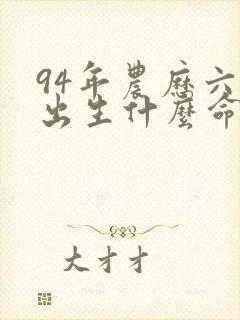 94年農歷六
出生什麼命
大才才